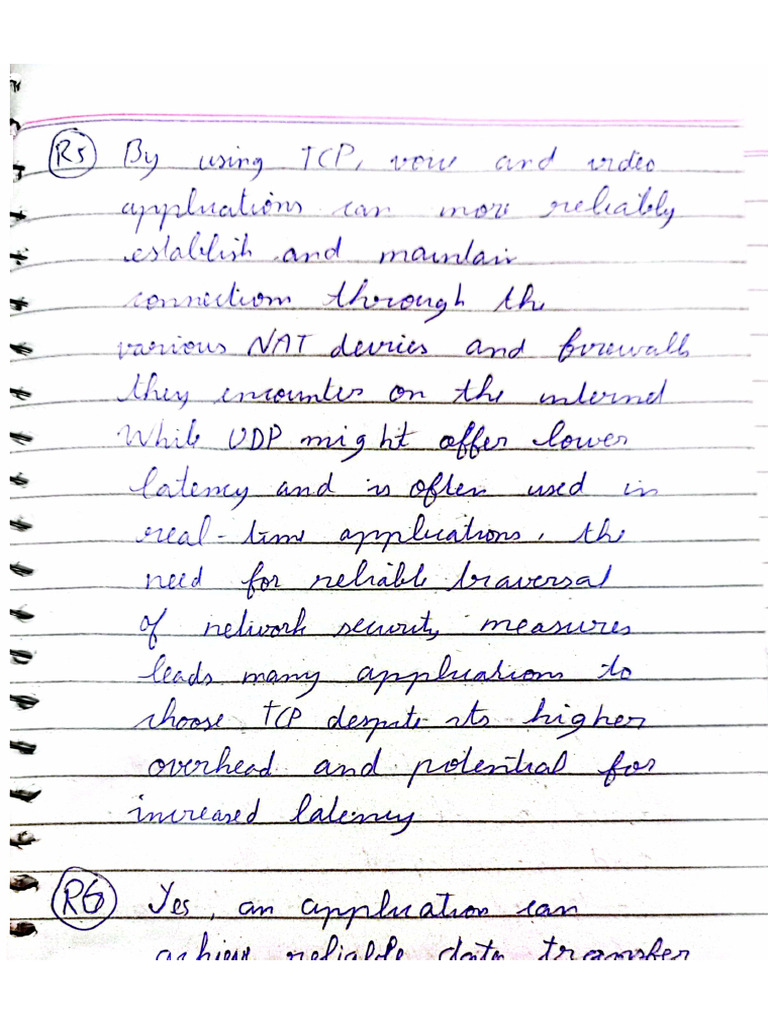 R5 By using TCP, voice and video
applications can more reliably
establish and maintain
connections through the
various NAT devices and firewalls
they encounter on the internet
While UDP might offer lower
latency and is often used in
real-time applications, the
need for reliable traversal
of network security measures
leads many applications to
choose TCP despite its higher
overhead and potential for
increased latency
R6 Yes, an application can
achieve reliable data transfer